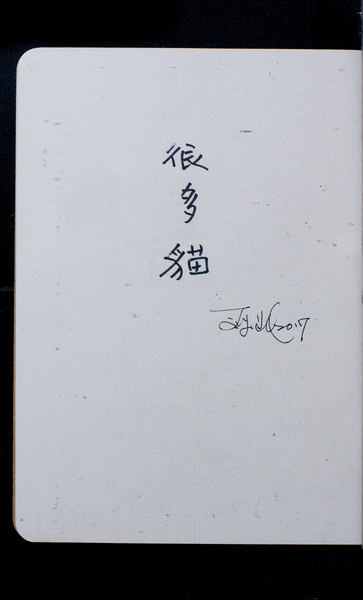 很多
貓
2017